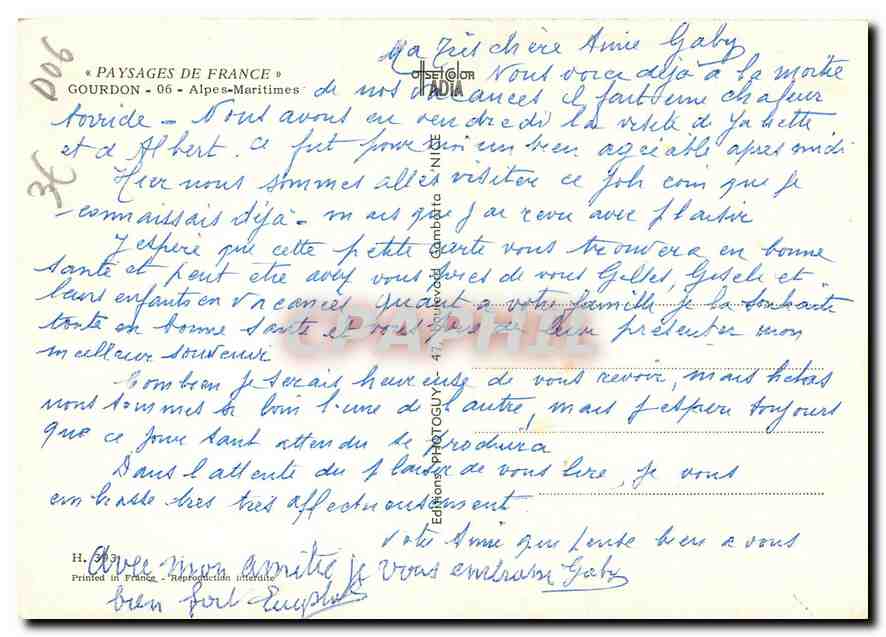 Ma Très chère Amie Gaby
« PAYSAGES DE FRANCE »
GOURDON - 06 - Alpes-Maritimes
D06
3€
OFFSETCOLOR
IADIA
Nous voici déjà à la moitié
de nos vacances il fait une chaleur
torride - Nous avons eu vendredi la visite de
et d'Albert. Ce fut pour moi un bien agréable après midi
Hier nous sommes allés visiter ce joli coin que je
connaissais déjà - mais que j'ai revu avec plaisir
J'espère que cette petite carte vous trouvera en bonne
santé et peut être avez vous près de vous Gilles, Gisèle et
leurs enfants en vacances quant à votre famille je la souhaite
toute en bonne santé et vous prie de leur présenter mon
meilleur souvenir
Combien je serais heureuse de vous revoir, mais hélas
nous sommes si loin l'une de l'autre, mais j'espère toujours
que ce jour tant attendu se produira
Dans l'attente du plaisir de vous lire, je vous
embrasse très très affectueusement
Votre Amie qui pense bien à vous
Gaby
Avec mon amitié je vous embrasse
bien fort
Editions PHOTOGUY - 47, Boulevard Gambetta - NICE
H. 393
Printed in France - Reproduction interdite
CPAPHIL